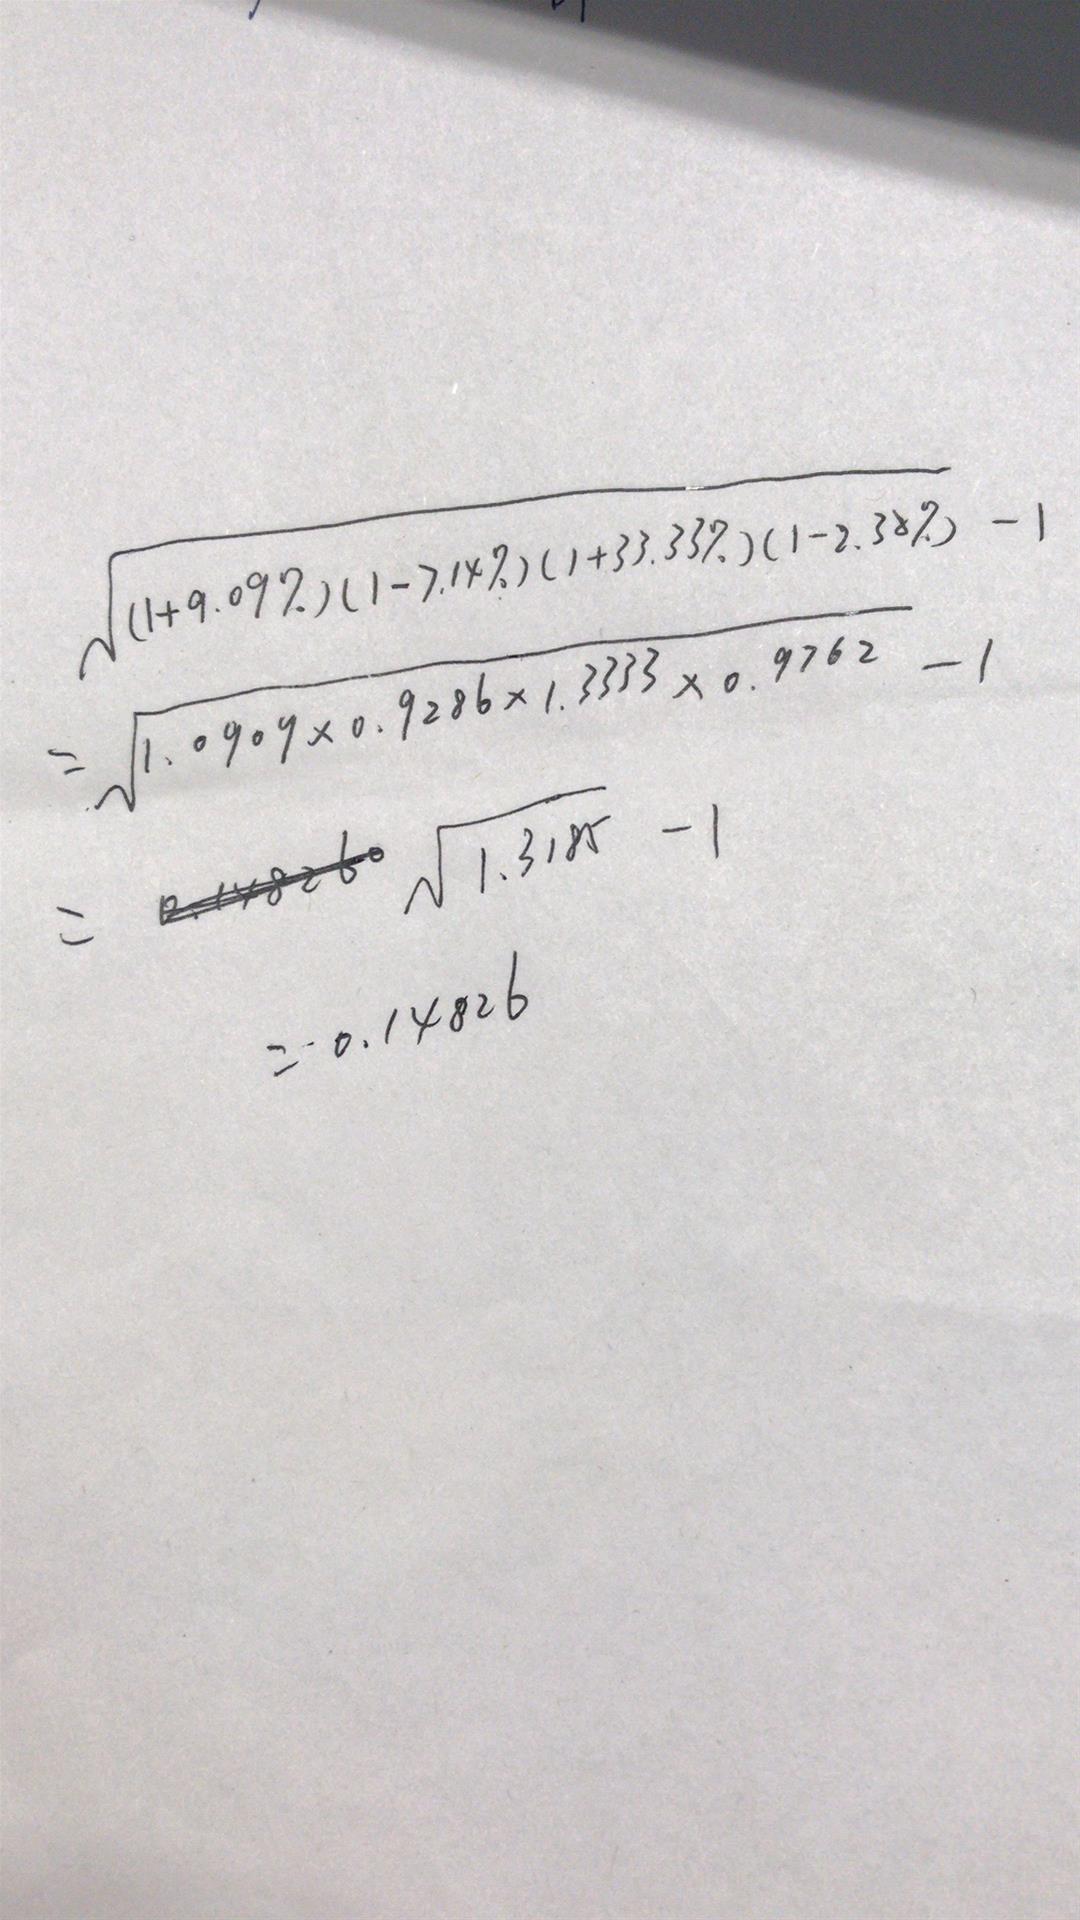 √(1+9.09%)(1-7.14%)(1+33.33%)(1-2.38%) -1
=√1.0909×0.9286×1.3333×0.9762 -1
= √1.3185 -1
=0.14826